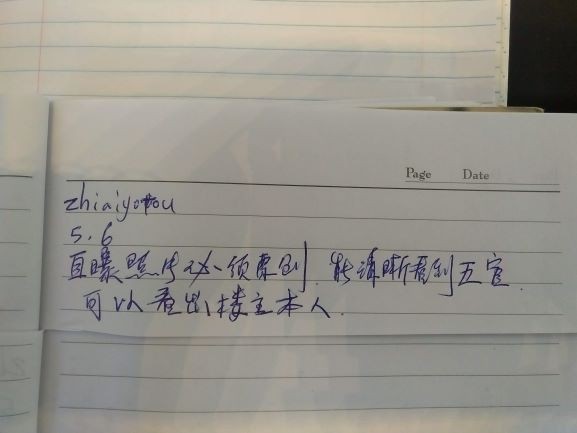 Page Date
zhiaiyotou
5.6
自曝照片必须原创.能清晰看到五官.
可以看出楼主本人.